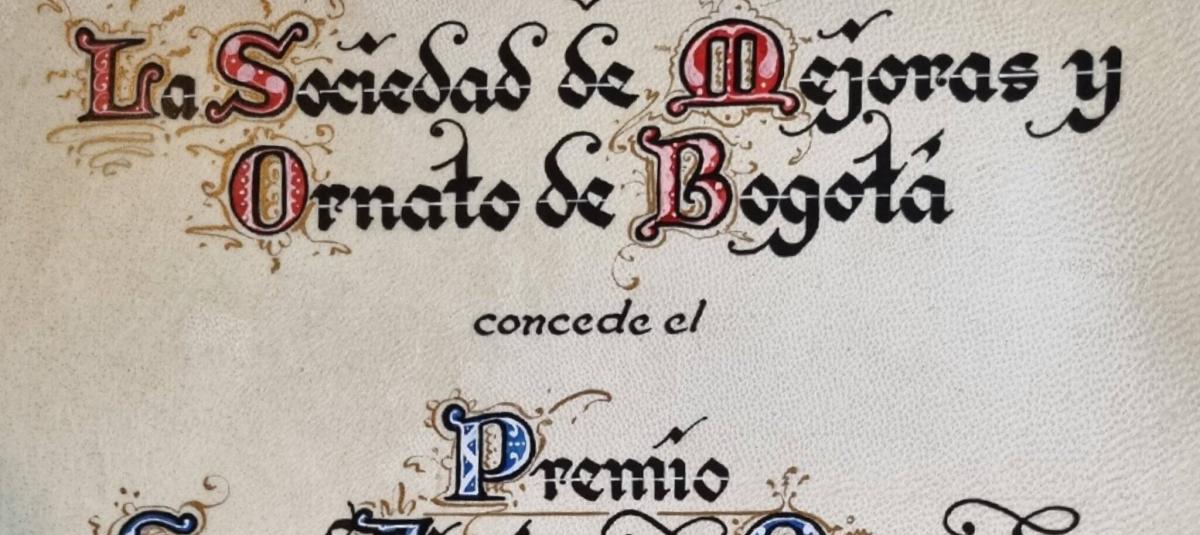 La Sociedad de Mejoras y
Ornato de Bogotá
concede el
Premio